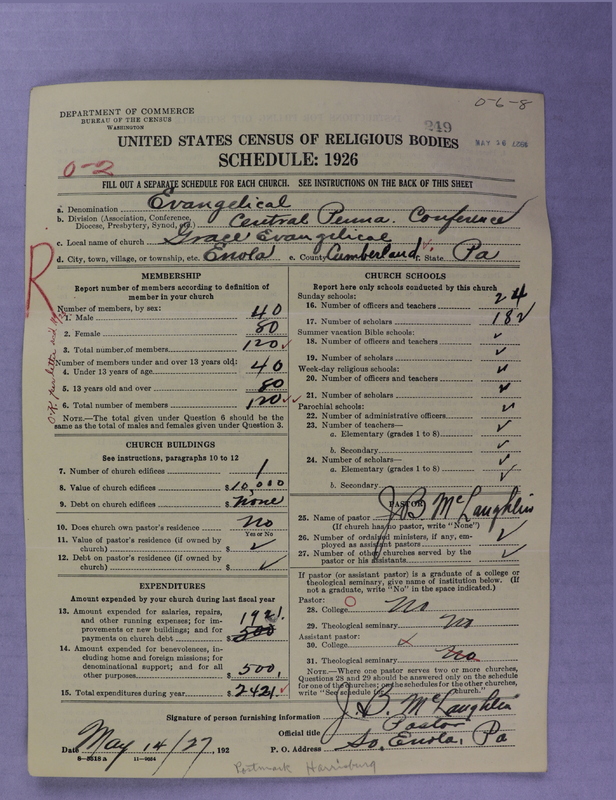 0-6-8
DEPARTMENT OF COMMERCE
BUREAU OF THE CENSUS
WASHINGTON
249
UNITED STATES CENSUS OF RELIGIOUS BODIES
SCHEDULE: 1926
0-2
FILL OUT A SEPARATE SCHEDULE FOR EACH CHURCH. SEE INSTRUCTIONS ON THE BACK OF THIS SHEET
a. Denomination Evangelical
b. Division (Association, Conference, Diocese, Presbytery, Synod, etc.) Central Penna. Conference
c. Local name of church Grace Evangelical
d. City, town, village, or township, etc. Enola e. County Cumberland f. State Pa
R
MEMBERSHIP
Report number of members according to definition of
member in your church
Number of members, by sex:
1. Male 40
2. Female 80
3. Total number of members 120 ✓
Number of members under and over 13 years old:
4. Under 13 years of age 40
5. 13 years old and over 80
6. Total number of members 120 ✓✓
NOTE.—The total given under Question 6 should be
the same as the total of males and females given under Question 3.
CHURCH BUILDINGS
See instructions, paragraphs 10 to 12
7. Number of church edifices 1
8. Value of church edifices $10,000
9. Debt on church edifices $ none
10. Does church own pastor's residence no
Yes or No
11. Value of pastor's residence (if owned by
church) $ ✓
12. Debt on pastor's residence (if owned by
church) $ ✓
EXPENDITURES
Amount expended by church during last fiscal year
13. Amount expended for salaries, repairs,
and other running expenses; for im-
provements or new buildings; and for
payments on church debt $ 1921. 500
14. Amount expended for benevolences, in-
cluding home and foreign missions; for
denominational support; and for all
other purposes $ 500.
15. Total expenditures during year $ 2421. ✓
CHURCH SCHOOLS
Report here only schools conducted by this church
Sunday schools:
16. Number of officers and teachers 24
17. Number of scholars 182
Summer vacation Bible schools:
18. Number of officers and teachers ✓
19. Number of scholars ✓
Week-day religious schools:
20. Number of officers and teachers ✓
21. Number of scholars ✓
Parochial schools:
22. Number of administrative officers ✓
23. Number of teachers—
a. Elementary (grades 1 to 8) ✓
b. Secondary ✓
24. Number of scholars—
a. Elementary (grades 1 to 8) ✓
b. Secondary ✓
PASTOR
25. Name of pastor J. B. McLaughlin
(If church has no pastor, write "None")
26. Number of ordained ministers, if any, em-
ployed as assistant pastors ✓
27. Number of other churches served by the
pastor or his assistants ✓
If pastor (or assistant pastor) is a graduate of a college or
theological seminary, give name of institution below. (If
not a graduate, write "No" in the space indicated.)
Pastor:
28. College no
29. Theological seminary no
Assistant pastor:
30. College
31. Theological seminary no
NOTE.—Where one pastor serves two or more churches,
Questions 28 and 29 should be answered only on the schedule
for one of the churches; on the schedules for the other churches,
write "See schedule for church."
Signature of person furnishing information J. B. McLaughlin
Official title Pastor
Date May 14/27, 192 P. O. Address So. Enola, Pa
8—5518 a 11—9034
Postmark Harrisburg